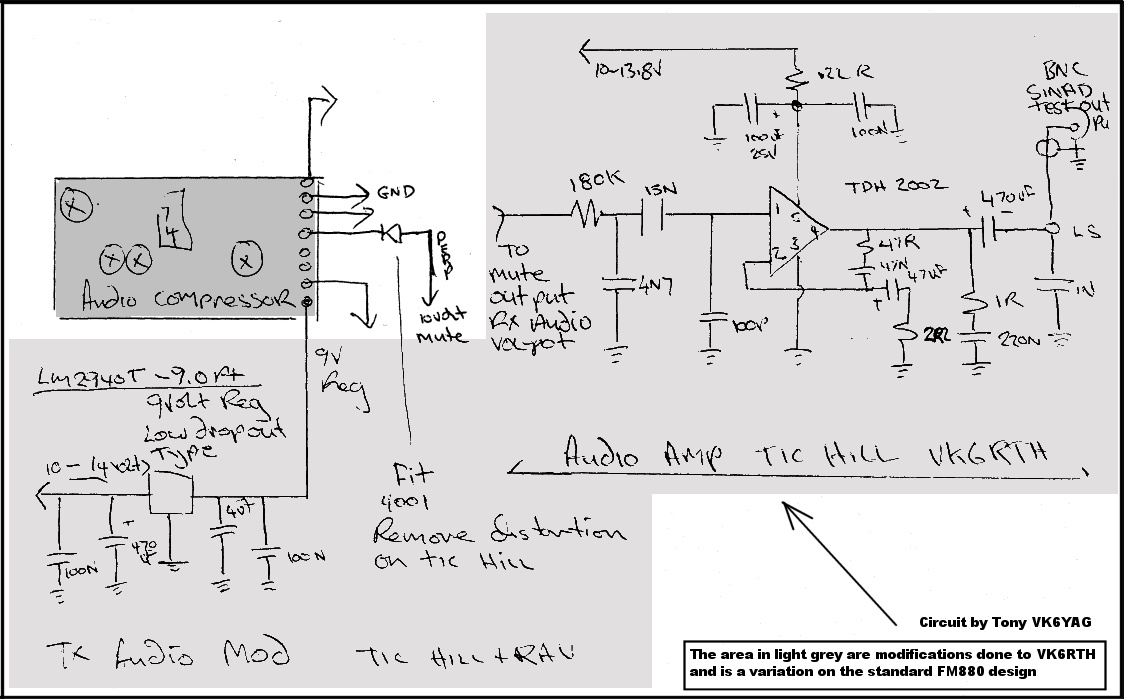 GND
10volt
mute
7
4
Audio compressor
9V
Reg
LM2940T-9.0
9Volt Reg
Low dropout
Type
10-14volt
100N
+
470
uF
100N
Fit
4001
Remove distortion
on TIC HILL
TX Audio Mod
TIC HILL + RAV
10-13.8V
.22 R
100uF
25V
+
100N
BNC
SINAD
Test out
180K
15N
TDH 2002
470uF
+
LS
1
2
3
5
4
TO
mute
output
RX Audio
Volpot
4N7
100P
47R
47N
47uF
+
2R2
1R
220N
1N
Audio Amp TIC HILL VK6RTH
Circuit by Tony VK6YAG
The area in light grey are modifications done to VK6RTH
and is a variation on the standard FM880 design